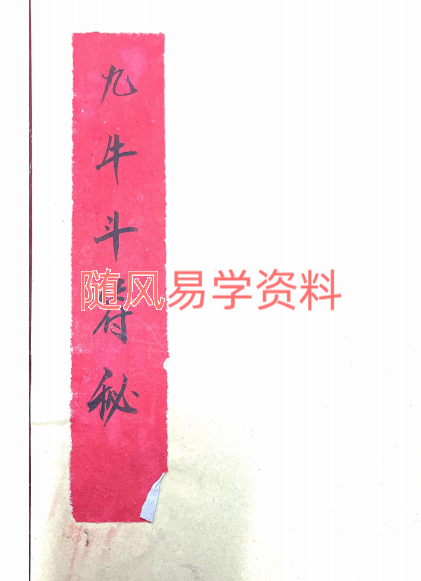 九牛斗符秘
随风易学资料